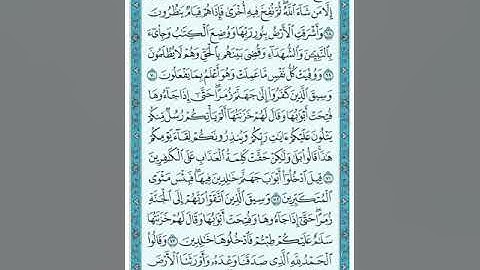 إِلَّا مَن شَآءَ ٱللَّهُ ثُمَّ نُفِخَ فِيهِ أُخْرَىٰ فَإِذَا هُمْ قِيَامٌ يَنظُرُونَ
﴿٦٨﴾ وَأَشْرَقَتِ ٱلْأَرْضُ بِنُورِ رَبِّهَا وَوُضِعَ ٱلْكِتَٰبُ وَجِا۟ىٓءَ
بِٱلنَّبِيِّـۧنَ وَٱلشُّهَدَآءِ وَقُضِىَ بَيْنَهُم بِٱلْحَقِّ وَهُمْ لَا يُظْلَمُونَ
﴿٦٩﴾ وَوُفِّيَتْ كُلُّ نَفْسٍ مَّا عَمِلَتْ وَهُوَ أَعْلَمُ بِمَا يَفْعَلُونَ ﴿٧٠﴾
وَسِيقَ ٱلَّذِينَ كَفَرُوٓا۟ إِلَىٰ جَهَنَّمَ زُمَرًا ۖ حَتَّىٰٓ إِذَا جَآءُوهَا
فُتِحَتْ أَبْوَٰبُهَا وَقَالَ لَهُمْ خَزَنَتُهَآ أَلَمْ يَأْتِكُمْ رُسُلٌ مِّنكُمْ
يَتْلُونَ عَلَيْكُمْ ءَايَٰتِ رَبِّكُمْ وَيُنذِرُونَكُمْ لِقَآءَ يَوْمِكُمْ
هَٰذَا ۚ قَالُوا۟ بَلَىٰ وَلَٰكِنْ حَقَّتْ كَلِمَةُ ٱلْعَذَابِ عَلَى ٱلْكَٰفِرِينَ
﴿٧١﴾ قِيلَ ٱدْخُلُوٓا۟ أَبْوَٰبَ جَهَنَّمَ خَٰلِدِينَ فِيهَا ۖ فَبِئْسَ مَثْوَى
ٱلْمُتَكَبِّرِينَ ﴿٧٢﴾ وَسِيقَ ٱلَّذِينَ ٱتَّقَوْا۟ رَبَّهُمْ إِلَى ٱلْجَنَّةِ
زُمَرًا ۖ حَتَّىٰٓ إِذَا جَآءُوهَا وَفُتِحَتْ أَبْوَٰبُهَا وَقَالَ لَهُمْ خَزَنَتُهَا
سَلَٰمٌ عَلَيْكُمْ طِبْتُمْ فَٱدْخُلُوهَا خَٰلِدِينَ ﴿٧٣﴾ وَقَالُوا۟
ٱلْحَمْدُ لِلَّهِ ٱلَّذِى صَدَقَنَا وَعْدَهُۥ وَأَوْرَثَنَا ٱلْأَرْضَ